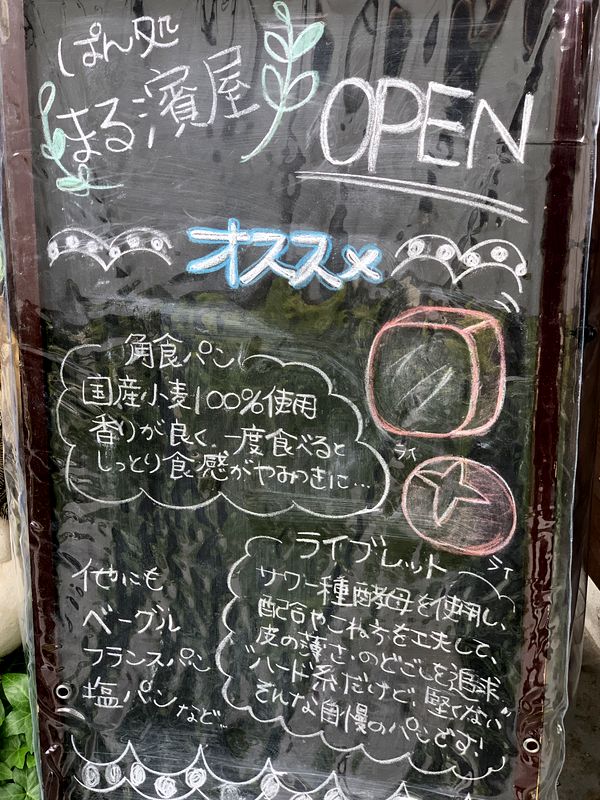 ぱん処
まる濱屋
OPEN
オススメ
角食パン
国産小麦100%使用
香りが良く、一度食べると
しっとり食感がやみつきに…
ライ
ライブレット
サワー種酵母を使用し、
配合やこね方を工夫して、
皮の薄さ、のどごしを追求。
"ハード系だけど、堅くない"
そんな自慢のパンです!
他にも
ベーグル
フランスパン
塩パン など…